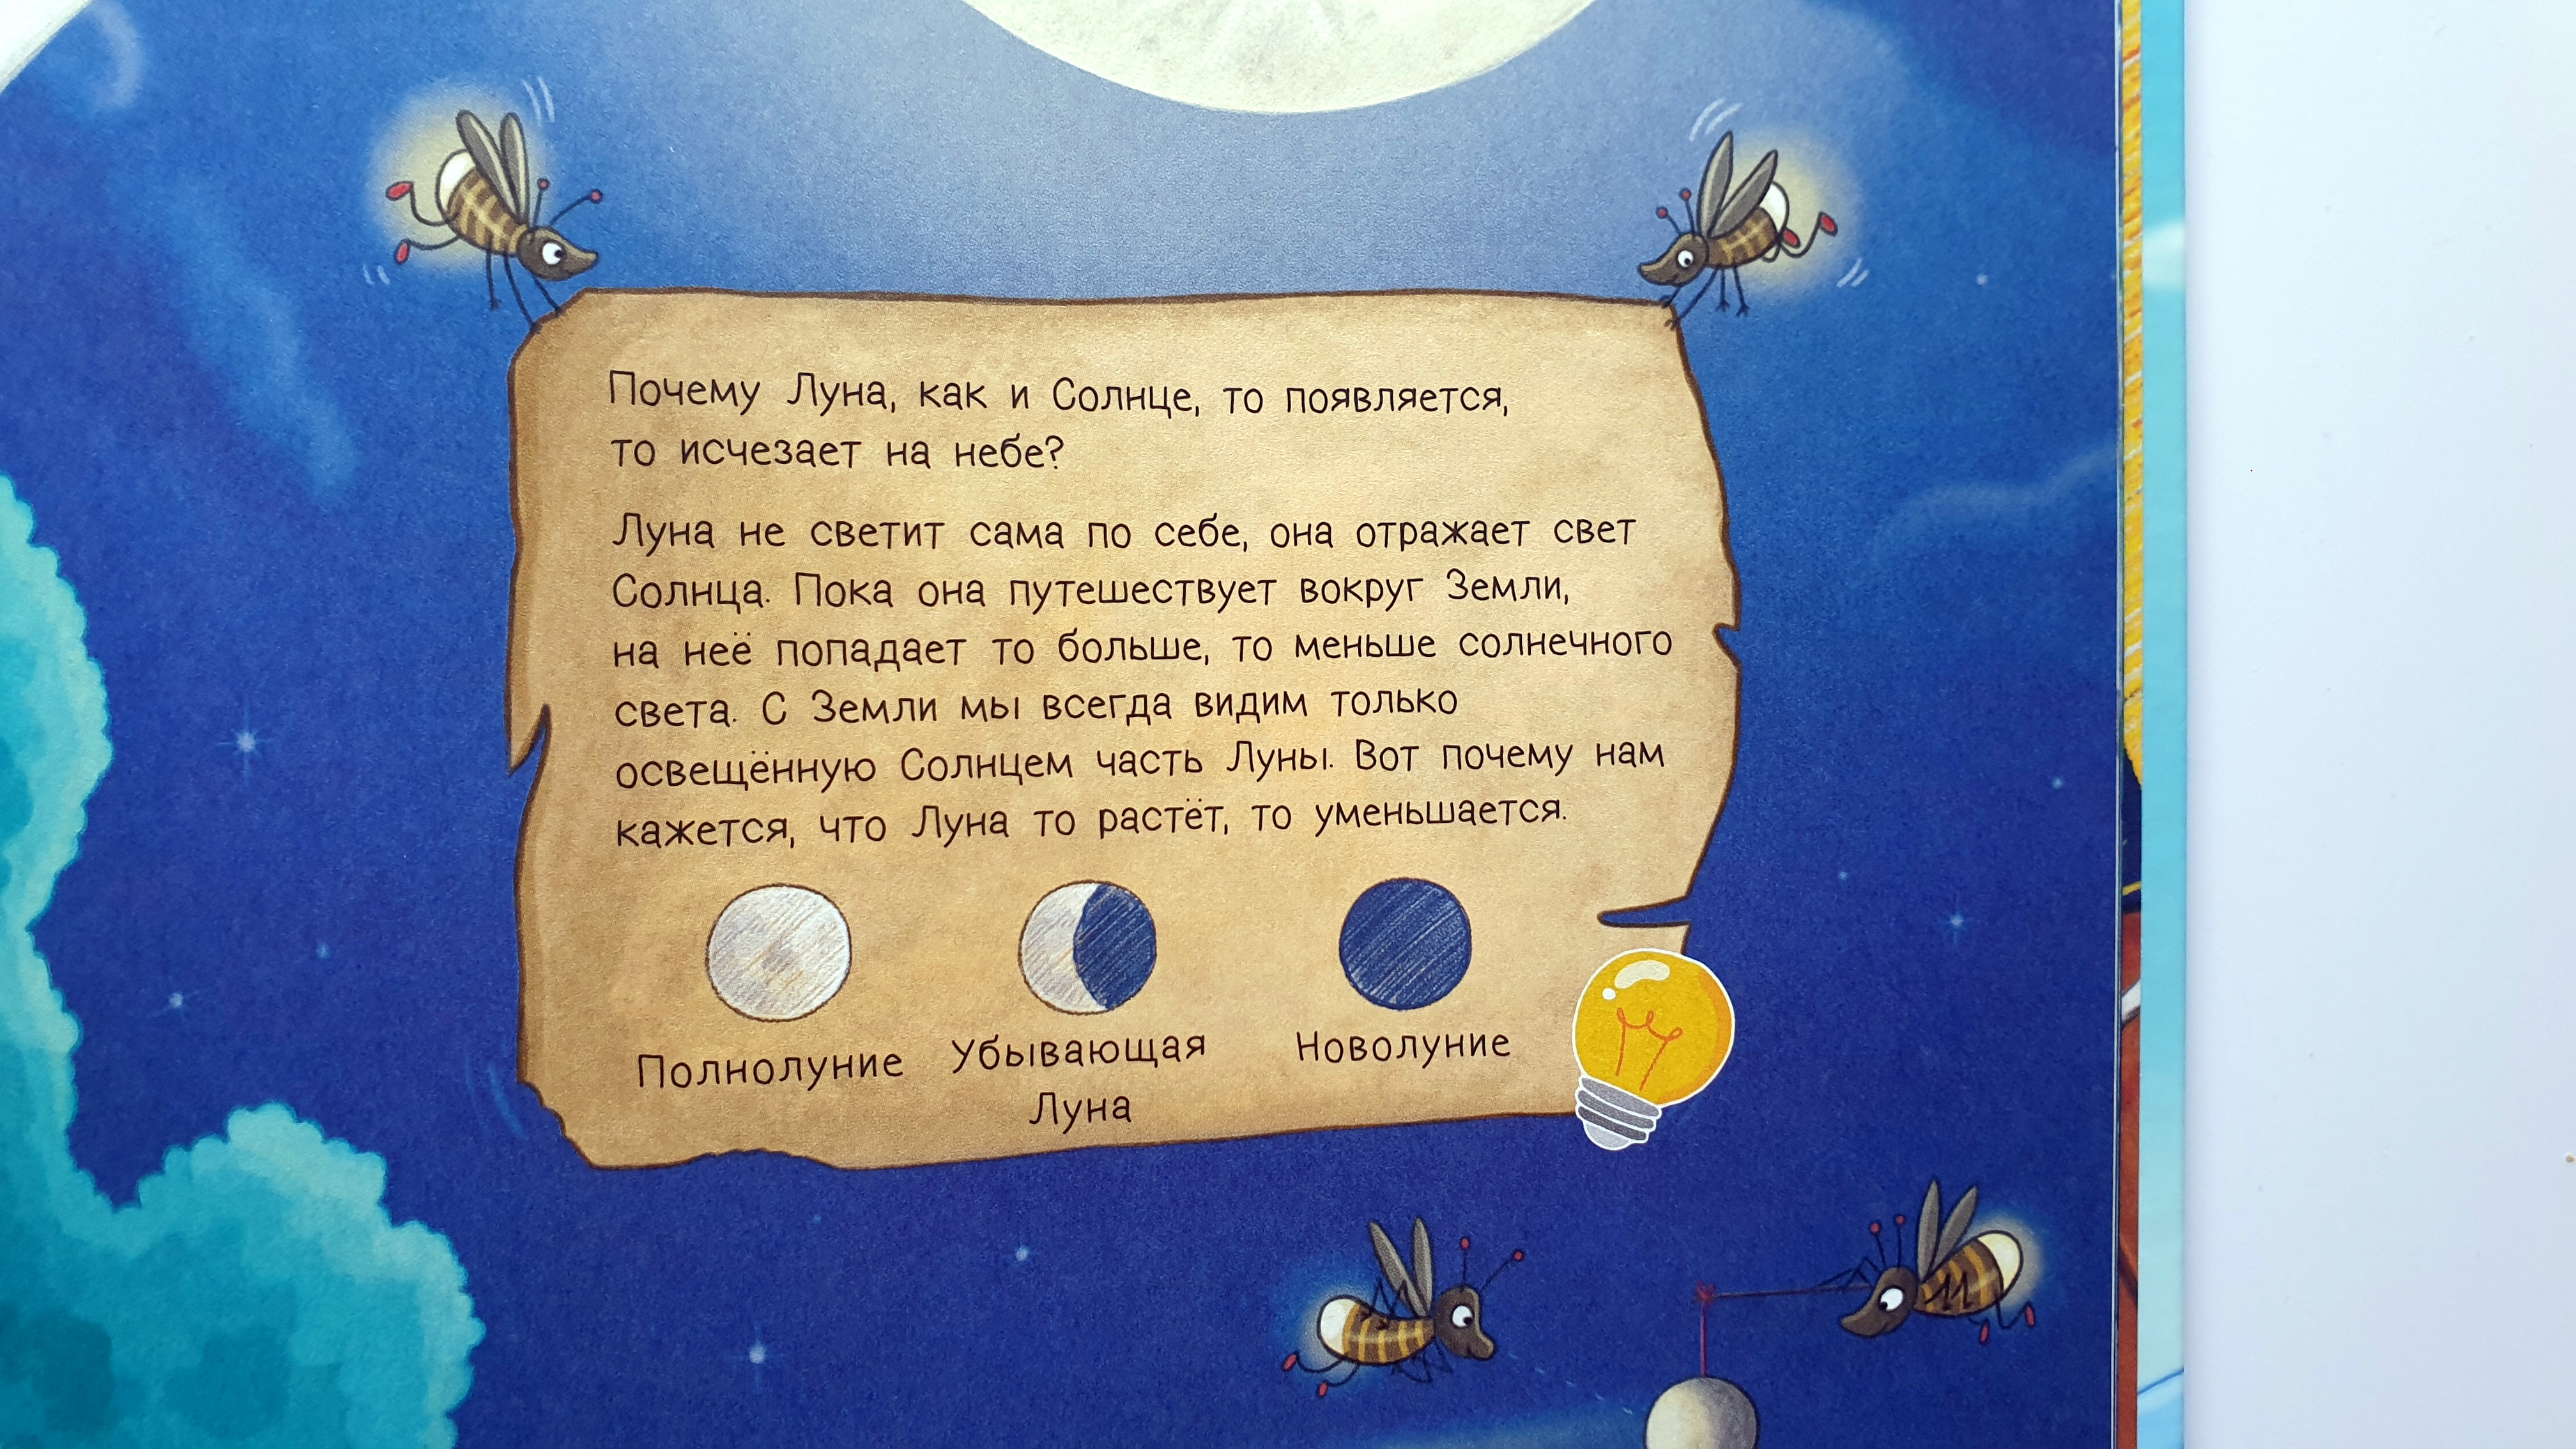 Почему Луна, как и Солнце, то появляется,
то исчезает на небе?
Луна не светит сама по себе, она отражает свет
Солнца. Пока она путешествует вокруг Земли,
на неё попадает то больше, то меньше солнечного
света. С Земли мы всегда видим только
освещённую Солнцем часть Луны. Вот почему нам
кажется, что Луна то растёт, то уменьшается.
Полнолуние
Убывающая
Луна
Новолуние